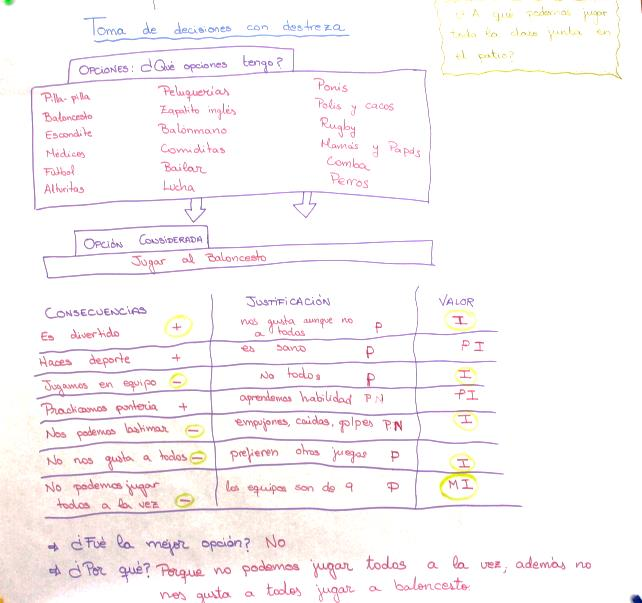 Toma de decisiones con destreza
¿A qué podemos jugar
toda la clase junta en
el patio?
OPCIONES: ¿Qué opciones tengo?
Pilla-pilla
Baloncesto
Escondite
Médicos
Fútbol
Alturitas
Peluquerías
Zapatito inglés
Balonmano
Comiditas
Bailar
Lucha
Ponis
Polis y cacos
Rugby
Mamás y Papás
Comba
Perros
OPCIÓN CONSIDERADA
Jugar al Baloncesto
CONSECUENCIAS JUSTIFICACIÓN VALOR
Es divertido + nos gusta aunque no
a todos P I
Haces deporte + es sano P PI
Jugamos en equipo - No todos P I
Practicamos puntería + aprendemos habilidad PN PI
Nos podemos lastimar - empujones, caídas, golpes PN I
No nos gusta a todos - prefieren otros juegos P I
No podemos jugar
todos a la vez - los equipos son de 9 P MI
⇒ ¿Fué la mejor opción? No
⇒ ¿Por qué? Porque no podemos jugar todos a la vez, además no
nos gusta a todos jugar a baloncesto